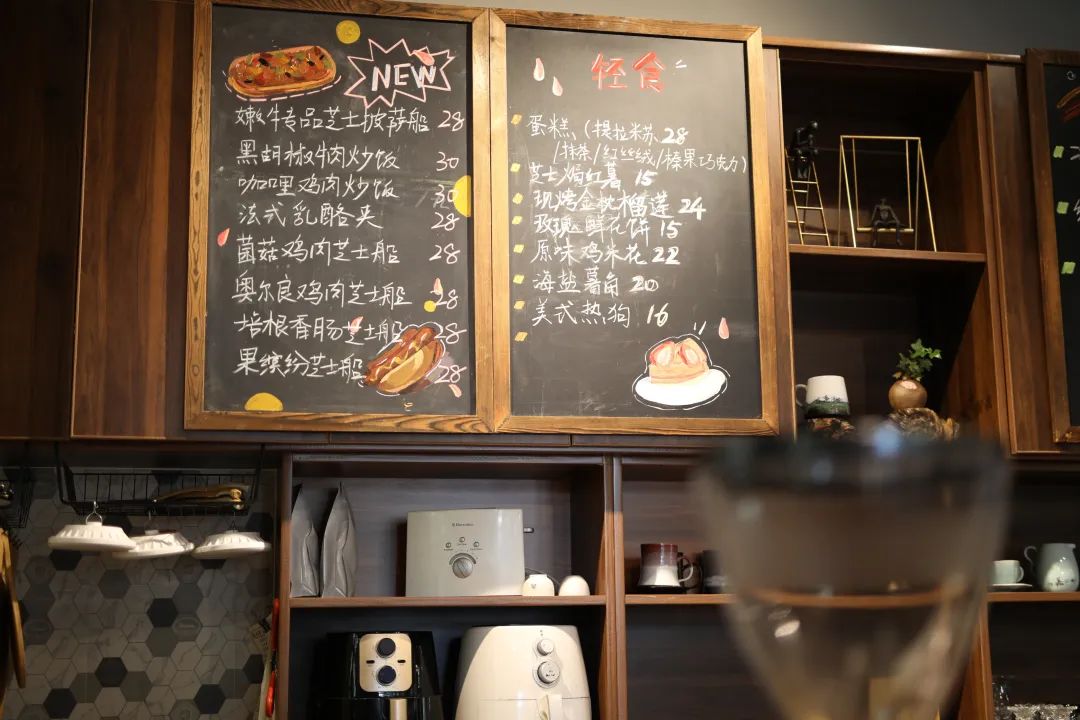 NEW
嫩牛专品芝士披萨船 28
黑胡椒牛肉炒饭 30
咖哩鸡肉炒饭 30
法式乳酪夹 28
菌菇鸡肉芝士船 28
奥尔良鸡肉芝士船 28
培根香肠芝士船 28
果缤纷芝士船 28
轻食
蛋糕、(提拉米苏 28
/抹茶/红丝绒/榛果巧克力)
芝士焗红薯 15
现烤金枕榴莲 24
玫瑰鲜花饼 15
原味鸡米花 22
海盐薯角 20
美式热狗 16
Electrolux